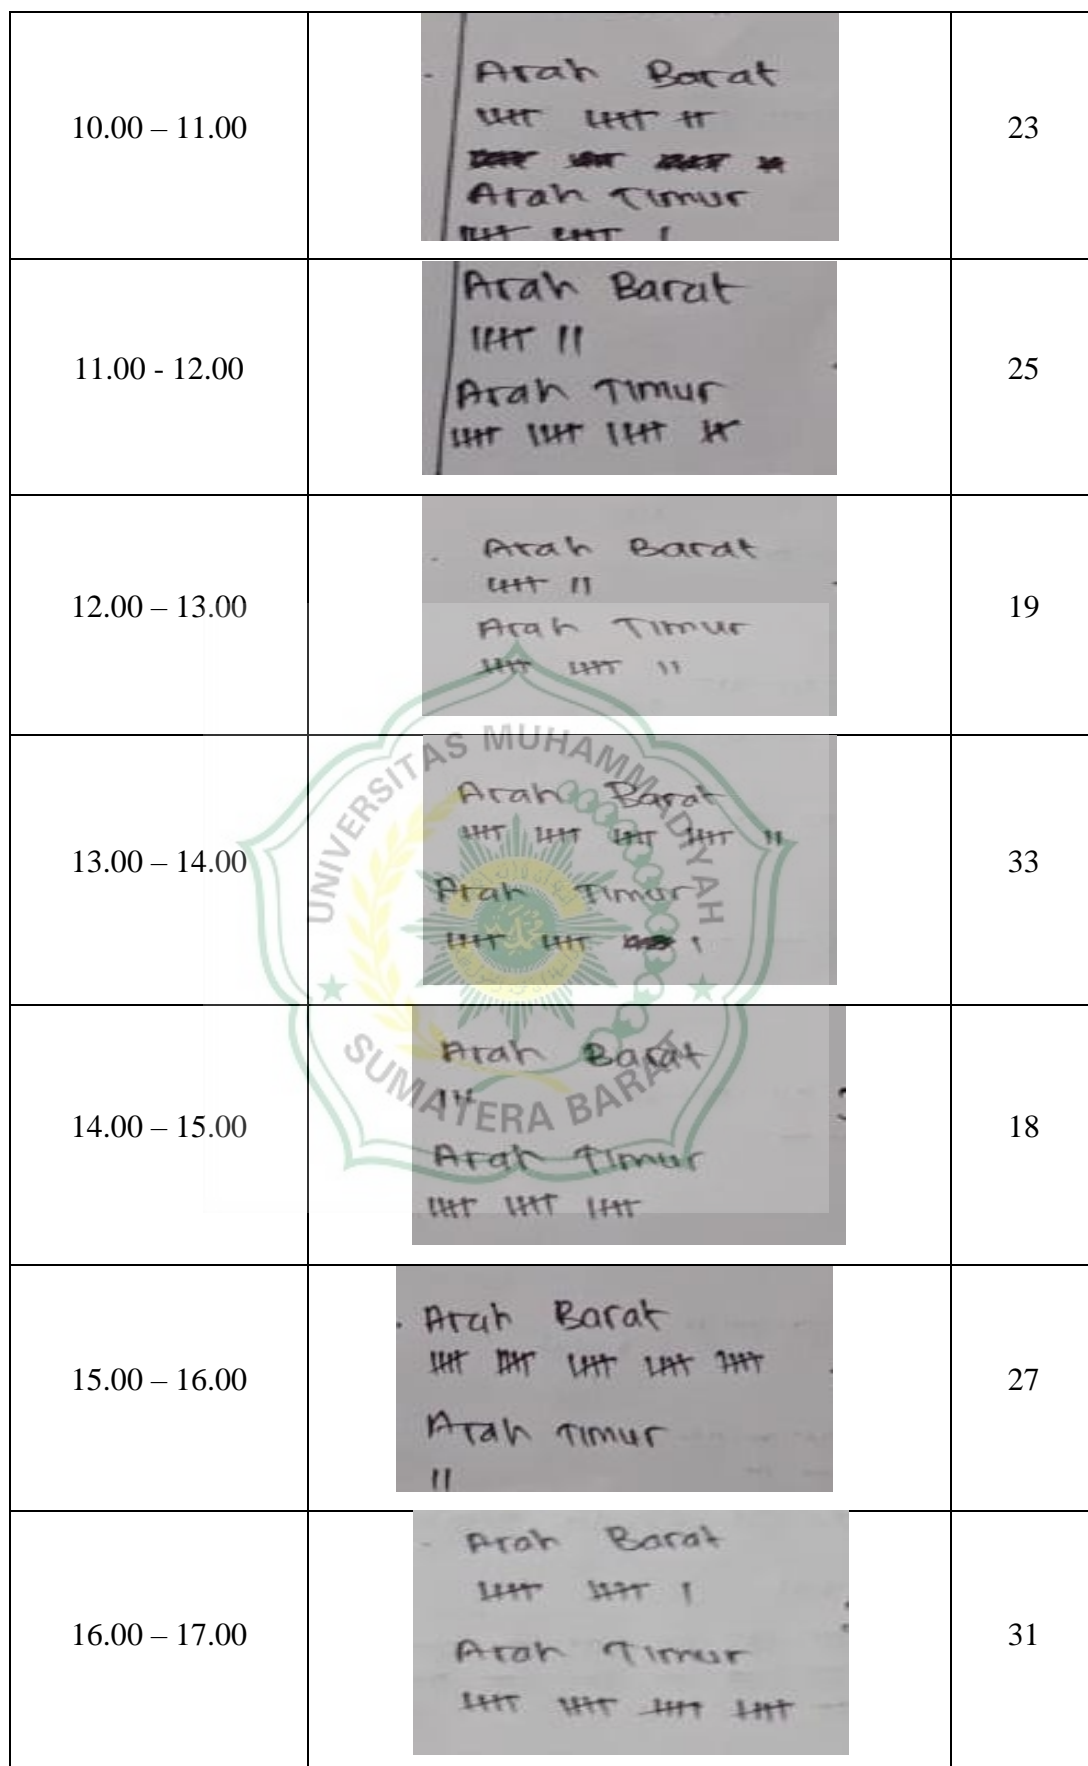 10.00 – 11.00
Arah Barat
Arah Timur
23
11.00 - 12.00
Arah Barat
Arah Timur
25
12.00 – 13.00
Arah Barat
Arah Timur
19
13.00 – 14.00
Arah Barat
Arah Timur
33
14.00 – 15.00
Arah Barat
Arah Timur
18
15.00 – 16.00
Arah Barat
Arah Timur
27
16.00 – 17.00
Arah Barat
Arah Timur
31
UNIVERSITAS MUHAMMADIYAH
SUMATERA BARAT